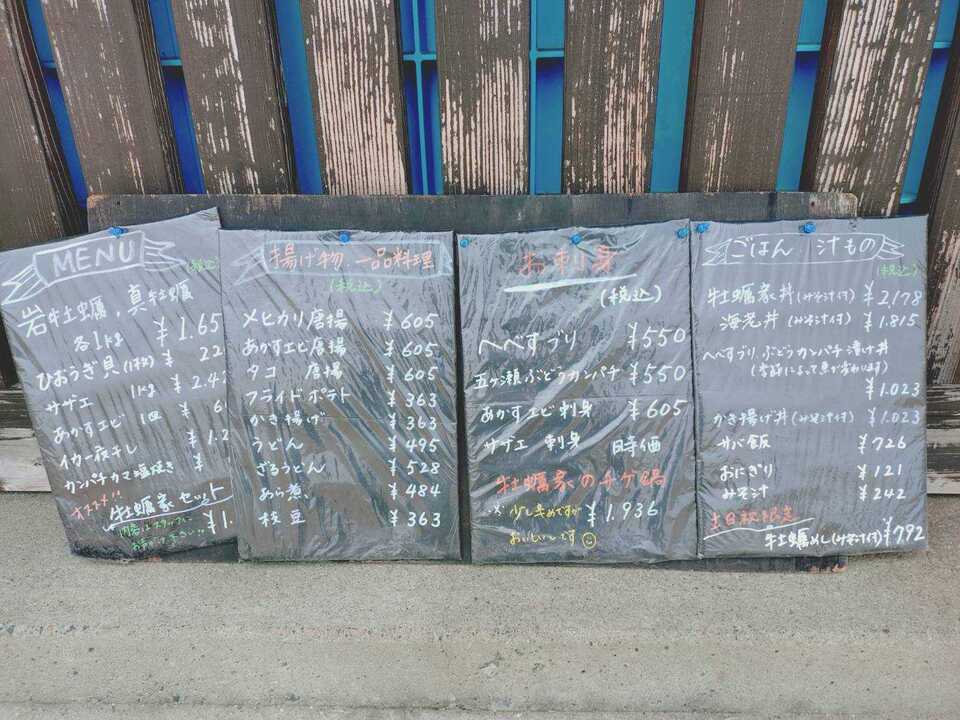 MENU
(税込)
岩牡蠣、真牡蠣
各1kg ¥1.65
ひおうぎ貝(1枚) ¥22
サザエ 1kg ¥2.4
あかすエビ 1皿 ¥6
イカ一夜干し ¥1.2
カンパチカマ塩焼き ¥
オススメ!!
牡蠣家セット
内容はスタッフに
¥1.
揚げ物、一品料理
(税込)
メヒカリ唐揚 ¥605
あかすエビ唐揚 ¥605
タコ 唐揚 ¥605
フライドポテト ¥363
かき揚げ ¥363
うどん ¥495
ざるうどん ¥528
あら煮 ¥484
枝豆 ¥363
お刺身
(税込)
へべすブリ ¥550
五ヶ瀬ぶどうカンパチ ¥550
あかすエビ刺身 ¥605
サザエ 刺身 時価
牡蠣家のチゲ鍋
※少し辛めですが ¥1.936
おいしいです
ごはん 汁もの
(税込)
牡蠣家丼(みそ汁付) ¥2.178
海老丼(みそ汁付) ¥1.815
へべすブリ、ぶどうカンパチ漬け丼
(季節によって魚が変わります)
¥1.023
かき揚げ丼(みそ汁付) ¥1.023
サバ飯 ¥726
おにぎり ¥121
みそ汁 ¥242
土日祝限定
牡蠣めし(みそ汁付) ¥792